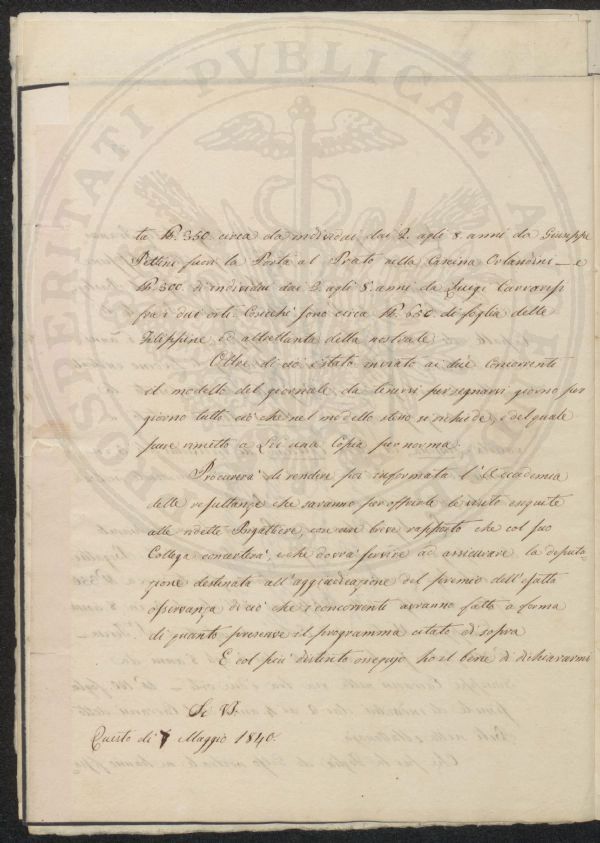 PROSPERITATI PVBLICAE AV
ta lb. 350. circa da individui dai 2. agli 8. anni da Giuseppe
Pettini fuori la Porta al Prato nella Cascina Orlandini — e
lb. 300. di individui dai 2. agli 8. anni da Luigi Carraresi
fra i due orti. Cosicchè sono circa lb. 650. di foglia delle
Filippine, ed altrettanta della nostrale.
Oltre di ciò è stato inviato ai due Concorrenti
il modello del giornale da tenersi per segnarvi giorno per
giorno tutto ciò che nel modello stesso si richiede, e del quale
pure rimetto a Lei una Copia per norma.
Procurerà di rendere poi informata l'Accademia
delle resultanze che saranno per offrirle le visite eseguite
alle ridette Bigattiere, con un breve rapporto che col suo
Collega concerterà, e che dovrà servire ad assicurare la deputa-
zione destinata all'aggiudicazione del premio dell'esatta
osservanza di ciò che i concorrenti avranno fatto a forma
di quanto prescrive il programma citato di sopra
E col più distinto ossequio ho il bene di dichiararmi
Di VS.
Questo dì 7 Maggio 1840.